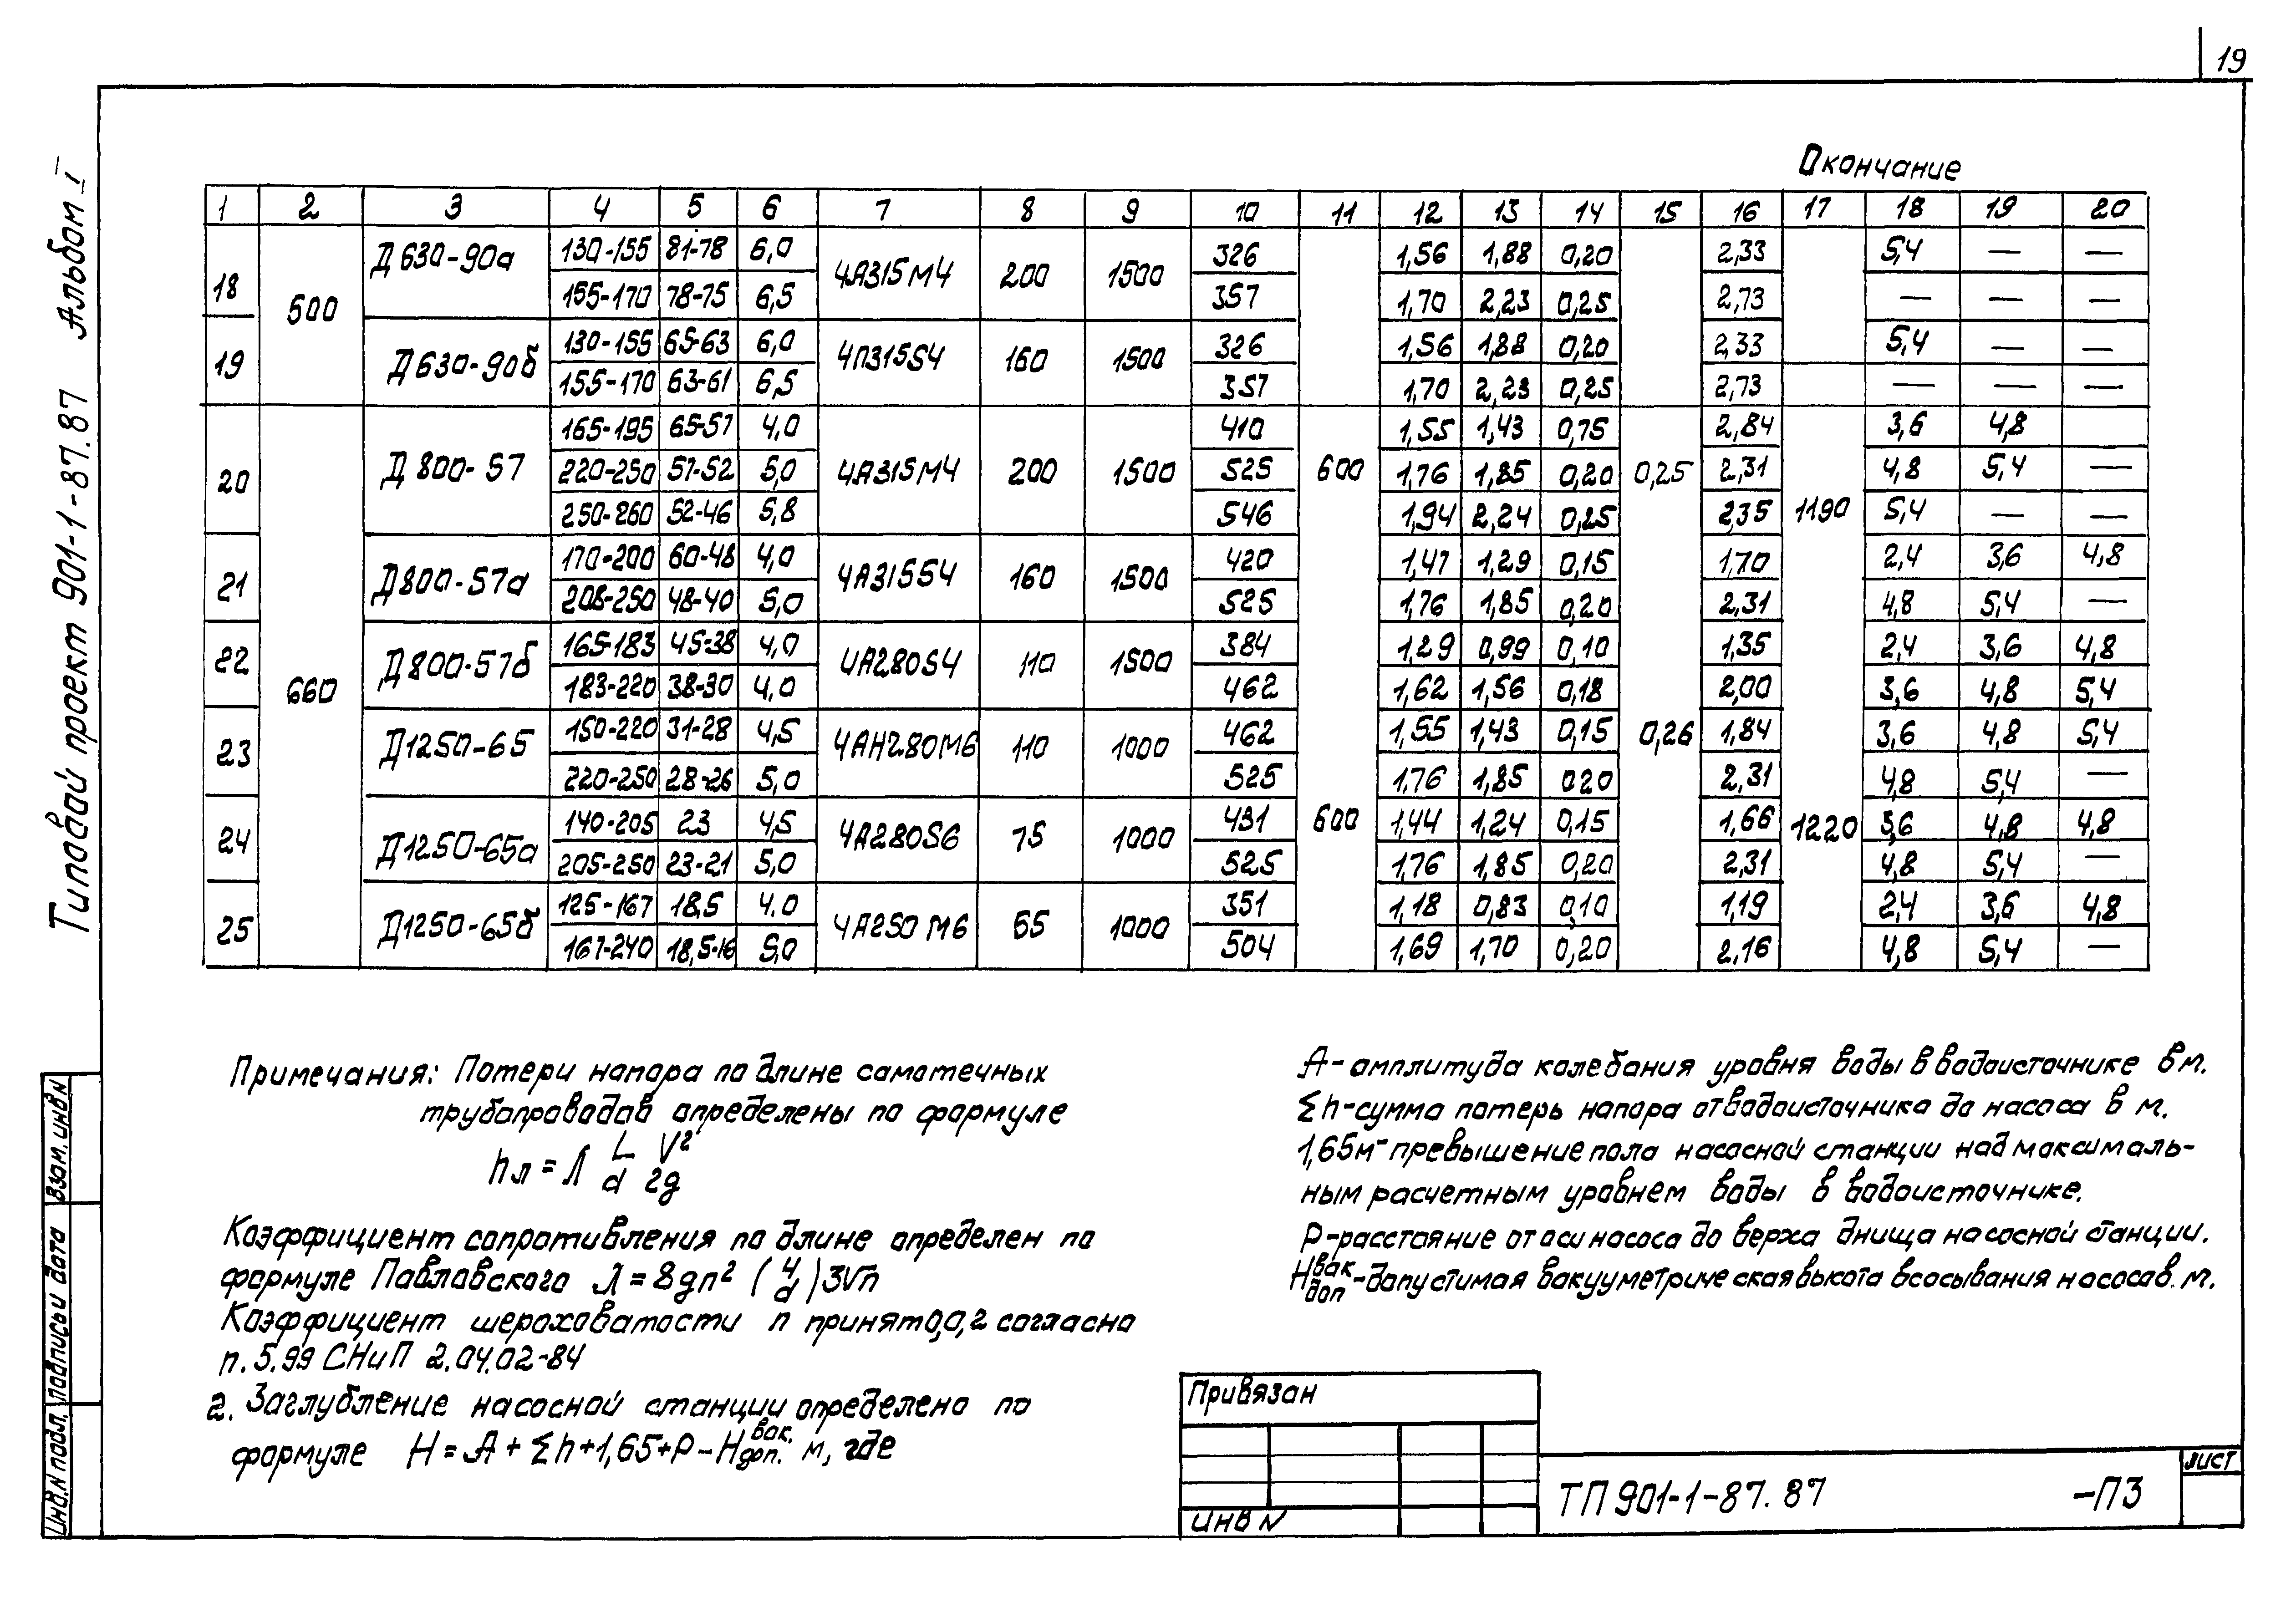 19
Типовой проект 901-1-87.87 Альбом I
Окончание
1 2 3 4 5 6 7 8 9 10 11 12 13 14 15 16 17 18 19 20
18 500 Д630-90а 130-155 81-78 6,0 4А315М4 200 1500 326 1,56 1,88 0,20 2,33 5,4 — —
155-170 78-75 6,5 357 1,70 2,23 0,25 2,73 — — —
19 Д630-90б 130-155 65-63 6,0 4П315S4 160 1500 326 1,56 1,88 0,20 2,33 5,4 — —
155-170 63-61 6,5 357 1,70 2,23 0,25 2,73 — — —
20 660 Д800-57 165-195 65-57 4,0 4А315М4 200 1500 410 600 1,55 1,43 0,75 0,25 2,84 1190 3,6 4,8
220-250 57-52 5,0 525 1,76 1,85 0,20 2,31 4,8 5,4 —
250-260 52-46 5,8 546 1,94 2,24 0,25 2,35 5,4 — —
21 Д800-57а 170-200 60-48 4,0 4А315S4 160 1500 420 1,47 1,29 0,15 1,70 2,4 3,6 4,8
208-250 48-40 5,0 525 1,76 1,85 0,20 2,31 4,8 5,4 —
22 Д800-57б 165-183 45-38 4,0 4А280S4 110 1500 384 1,29 0,99 0,10 1,35 2,4 3,6 4,8
183-220 38-30 4,0 462 1,62 1,56 0,18 2,00 3,6 4,8 5,4
23 Д1250-65 150-220 31-28 4,5 4АН280М6 110 1000 462 600 1,55 1,43 0,15 0,26 1,84 1220 3,6 4,8 5,4
220-250 28-26 5,0 525 1,76 1,85 0,20 2,31 4,8 5,4 —
24 Д1250-65а 140-205 23 4,5 4А280S6 75 1000 431 1,44 1,24 0,15 1,66 3,6 4,8 4,8
205-250 23-21 5,0 525 1,76 1,85 0,20 2,31 4,8 5,4 —
25 Д1250-65б 125-167 18,5 4,0 4А250М6 55 1000 351 1,18 0,83 0,10 1,19 2,4 3,6 4,8
167-240 18,5-16 5,0 504 1,69 1,70 0,20 2,16 4,8 5,4 —
Примечания: Потери напора по длине самотечных
трубопроводов определены по формуле
hл = λ L/d V²/2g
Коэффициент сопротивления по длине определен по
формуле Павловского λ = 8gn² (4/d)3√n
Коэффициент шероховатости n принят0,0,2 согласно
п. 5.99 СНиП 2.04.02-84
2. Заглубление насосной станции определено по
формуле H = A + Σh + 1,65 + P – Hвак.доп. м, где
A – амплитуда колебания уровня воды в водоисточнике в м.
Σh – сумма потерь напора от водоисточника до насоса в м.
1,65м – превышение пола насосной станции над максималь-
ным расчетным уровнем воды в водоисточнике.
P – расстояние от оси насоса до верха днища насосной станции.
Hвакдоп – допустимая вакууметрическая высота всасывания насосов. м.
Привязан
ИНВ N
ТП 901-1-87.87 -ПЗ
лист
Инв.N подл. Подписьи дата Взам. инв N